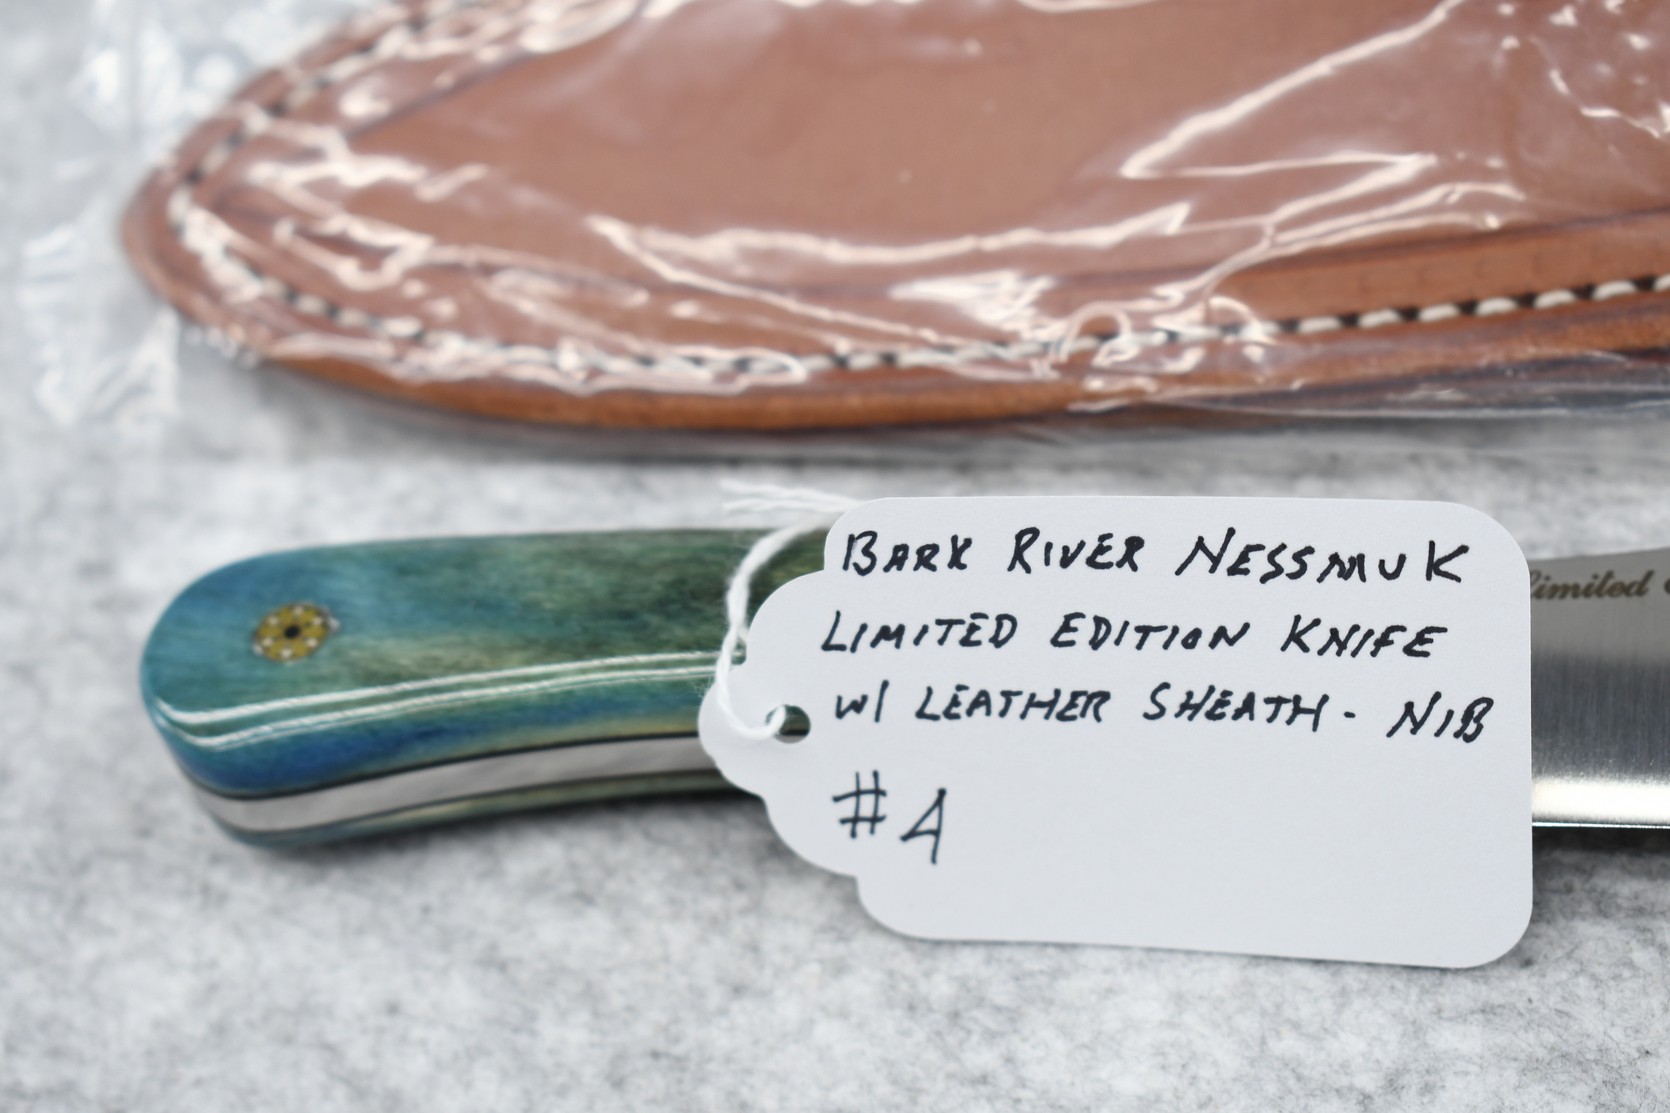 BARK RIVER NESSMUK
LIMITED EDITION KNIFE
W/ LEATHER SHEATH - NIB
#4
Limited